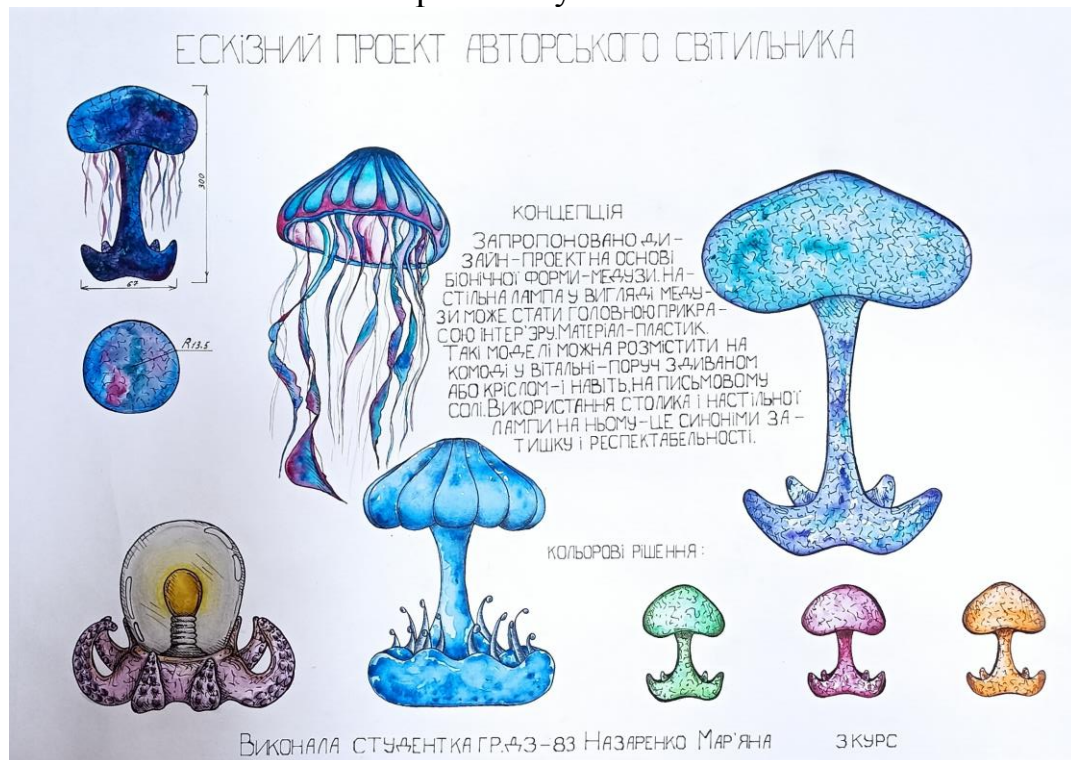 ЕСКІЗНИЙ ПРОЕКТ АВТОРСЬКОГО СВІТИЛЬНИКА
300
67
R13.5
КОНЦЕПЦІЯ
ЗАПРОПОНОВАНО ДИ-
ЗАЙН-ПРОЕКТ НА ОСНОВІ
БІОНІЧНОЇ ФОРМИ-МЕДУЗИ. НА-
СТІЛЬНА ЛАМПА У ВИГЛЯДІ МЕДУ-
ЗИ МОЖЕ СТАТИ ГОЛОВНОЮ ПРИКРА-
СОЮ ІНТЕР'ЭРУ. МАТЕРІАЛ-ПЛАСТИК.
ТАКІ МОДЕЛІ МОЖНА РОЗМІСТИТИ НА
КОМОДІ У ВІТАЛЬНІ-ПОРУЧ З ДИВАНОМ
АБО КРІСЛОМ-І НАВІТЬ, НА ПИСЬМОВОМУ
СОЛІ. ВИКОРИСТАННЯ СТОЛИКА І НАСТІЛЬНОЇ
ЛАМПИ НА НЬОМУ-ЦЕ СИНОНІМИ ЗА-
ТИШКУ І РЕСПЕКТАБЕЛЬНОСТІ.
КОЛЬОРОВІ РІШЕННЯ:
ВИКОНАЛА СТУДЕНТКА ГР.ДЗ-83 НАЗАРЕНКО МАР'ЯНА 3 КУРС